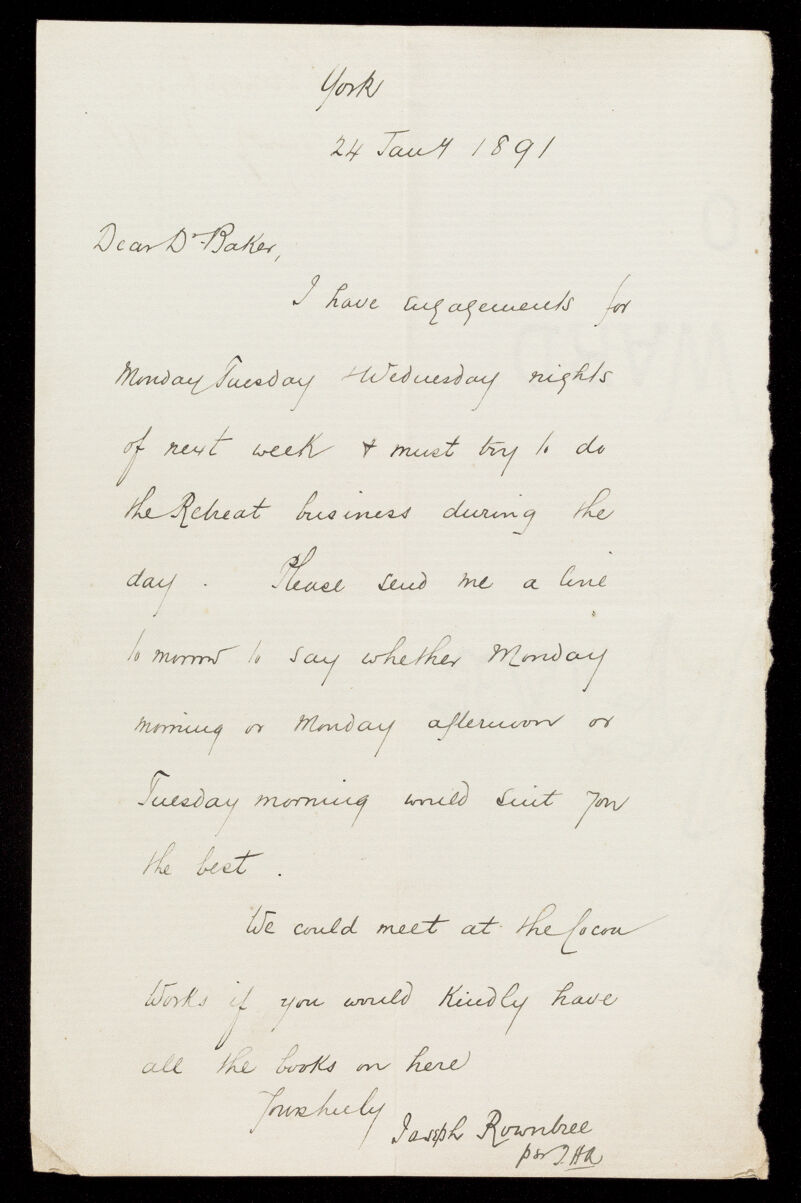 York
24 Jany 1891
Dear Dr Baker,
I have engagements for
Monday Tuesday & Wednesday nights
of next week & must try to do
the Retreat business during the
day . Please send me a line
to morrow to say whether Monday
morning or Monday afternoon or
Tuesday morning would suit you
the best .
We could meet at the Cocoa
Works if you would kindly have
all the books on here
Yours truly
Joseph Rowntree
per